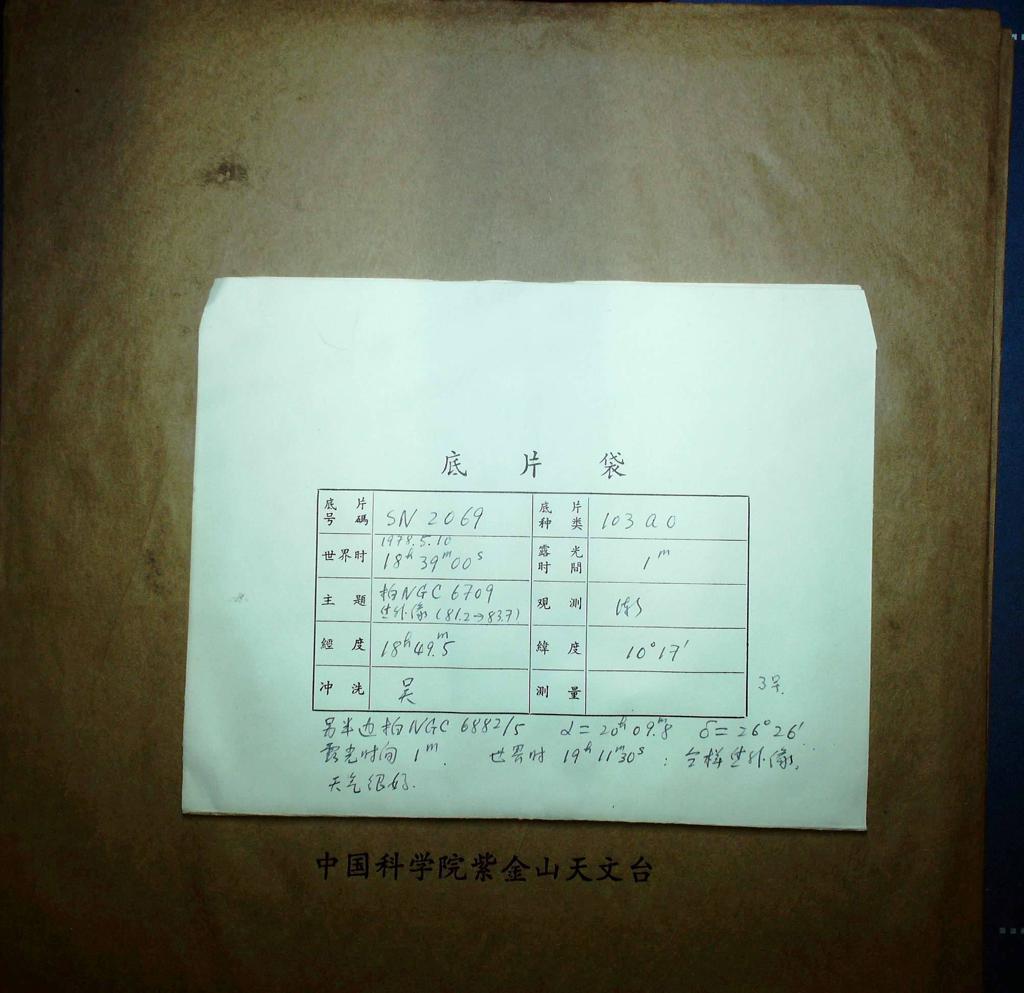 底片袋
底片号碼 SN 2069 底片种类 103aO
世界时 1978.5.10 18ʰ39ᵐ00ˢ 露光时間 1ᵐ
主題 拍NGC 6709 焦外像(81.2→83.7) 观測
經度 18ʰ49ᵐ.5 緯度 10°17′
冲洗 吴 測量
3号.
另半边拍NGC 6882/5 α=20ʰ09ᵐ.8 δ=26°26′
露光时间 1ᵐ. 世界时 19ʰ11ᵐ30ˢ : 仝样焦外像.
天气很好.
中国科学院紫金山天文台